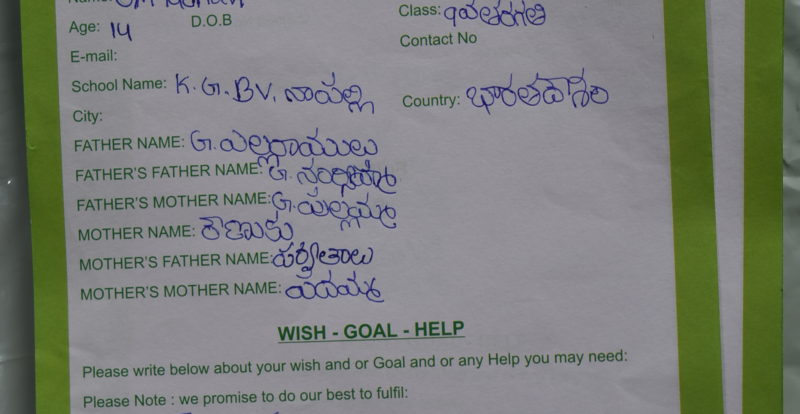 Age: 14 D.O.B
Class: 9వతరగతి
E-mail:
Contact No
School Name: K.G.BV.
City:
Country: భారతదేశం
FATHER NAME: G.ఎల్లరాములు
FATHER'S FATHER NAME: G.
FATHER'S MOTHER NAME: G.ఎల్లమ్మ
MOTHER NAME: రేణుక
MOTHER'S FATHER NAME:
MOTHER'S MOTHER NAME:
WISH - GOAL - HELP
Please write below about your wish and or Goal and or any Help you may need:
Please Note : we promise to do our best to fulfil: